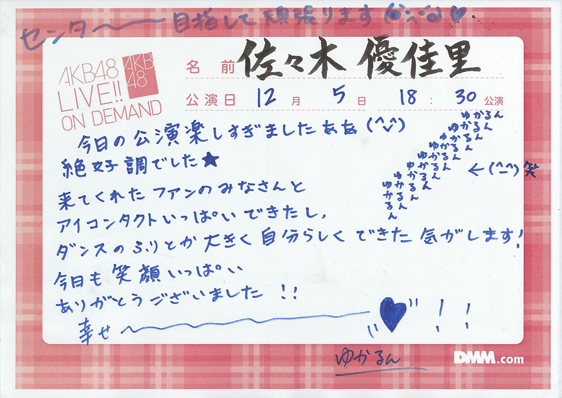 センター〜〜目指して頑張ります(^-^)♥
AKB48
LIVE!!
ON DEMAND
AKB
48
名前 佐々木優佳里
公演日 12月 5日 18:30公演
今日の公演楽しすぎましたぁぁ(^-^)
絶好調でした★
来てくれたファンのみなさんと
アイコンタクトいっぱいできたし、
ダンスのふりとか大きく自分らしくできた気がします!
今日も笑顔いっぱい
ありがとうございました!!
幸せ〜〜♥!!
ゆかるん
ゆかるん
ゆかるん
ゆかるん
ゆかるん
ゆかるん
ゆかるん
かるん
るん
ん
←(^-^)笑
ゆかるん
DMM.com